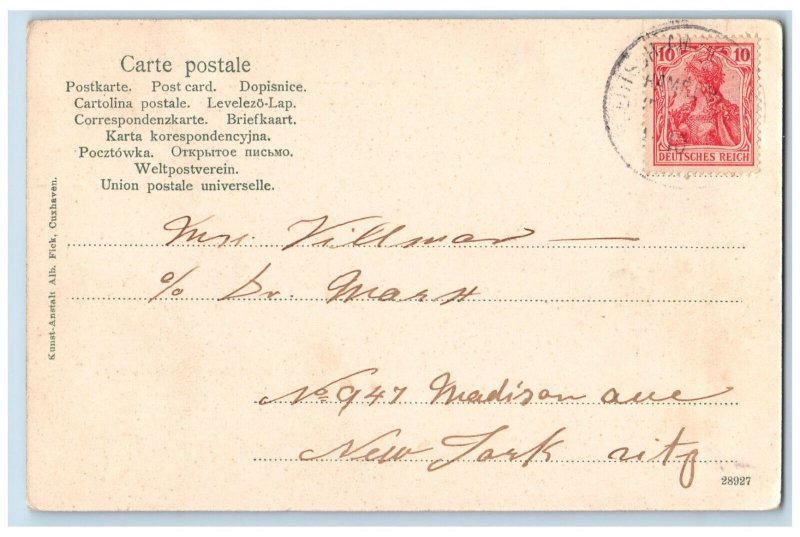 Carte postale
Postkarte. Post card. Dopisnice.
Cartolina postale. Levelező-Lap.
Correspondenzkarte. Briefkaart.
Karta korespondencyjna.
Pocztówka. Открытое письмо.
Weltpostverein.
Union postale universelle.
10 10
DEUTSCHES REICH
Kunst-Anstalt Alb. Fick, Cuxhaven.
Mrs. Villmar
c/o Dr.
No 947 Madison ave
New York city
28927